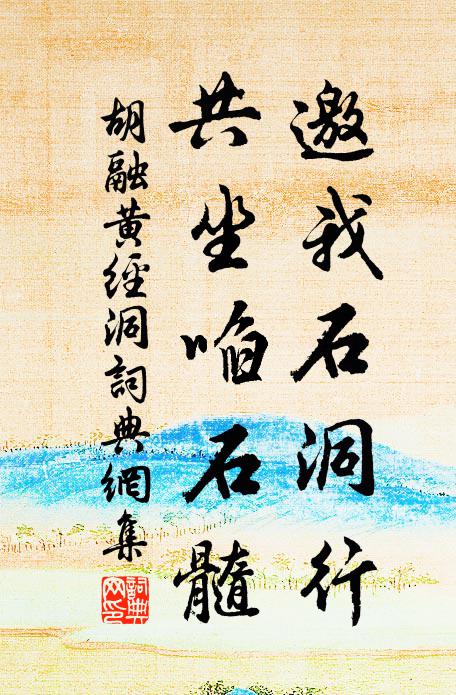 邀我石洞行
共坐啗石髓
胡融黃經洞詞典網集
詞典網印